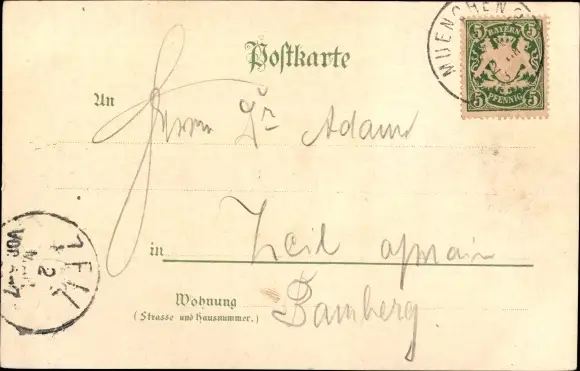 MUENCHEN
5 BAYERN 5
5 PFENNIG 5
Postkarte
An
Herrn Dr Adam
in Zeil a/main
Bamberg.
Wohnung
(Strasse und Hausnummer.)
ZEIL
2
VOR